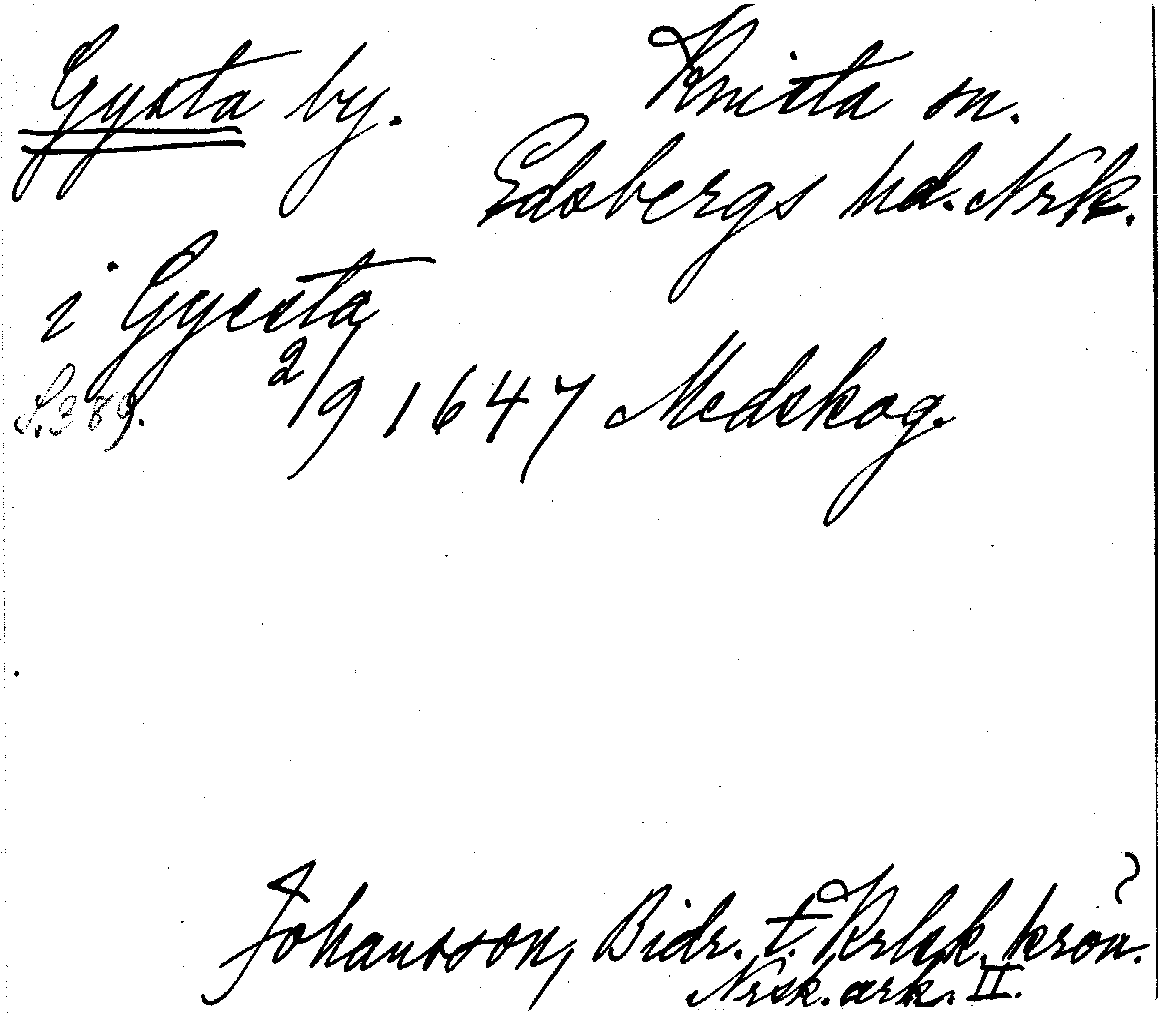 Gysta by. Knista sn.
Edsbergs hd. Nrk.
i Gyesta
S. 389. 2/9 1647 Medskog.
Johansson, Bidr. t. Krlsk. krön.
Nrsk. ark. II.